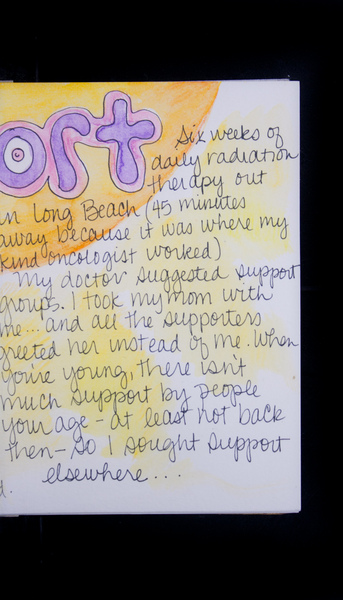 ort
Six weeks of
daily radiation
therapy out
in Long Beach (45 minutes
away because it was where my
kind oncologist worked)
My doctor suggested support
groups. I took my mom with
me... and all the supporters
greeted her instead of me. When
you're young, there isn't
much support by people
your age - at least not back
then - so I sought support
elsewhere...
d.